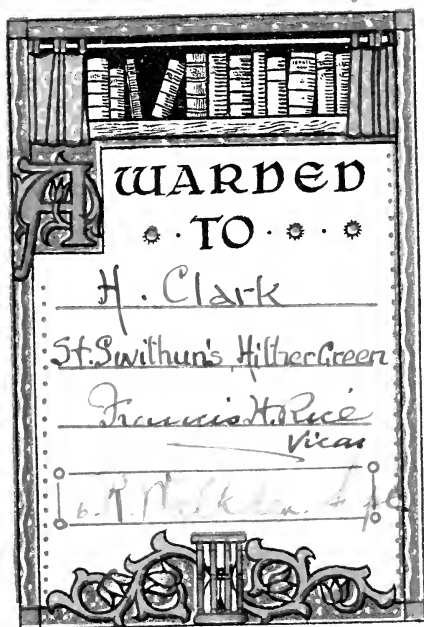 AWARDED
TO
H. Clark
St. Swithun's, Hither Green
Francis H. Rice
Vicar